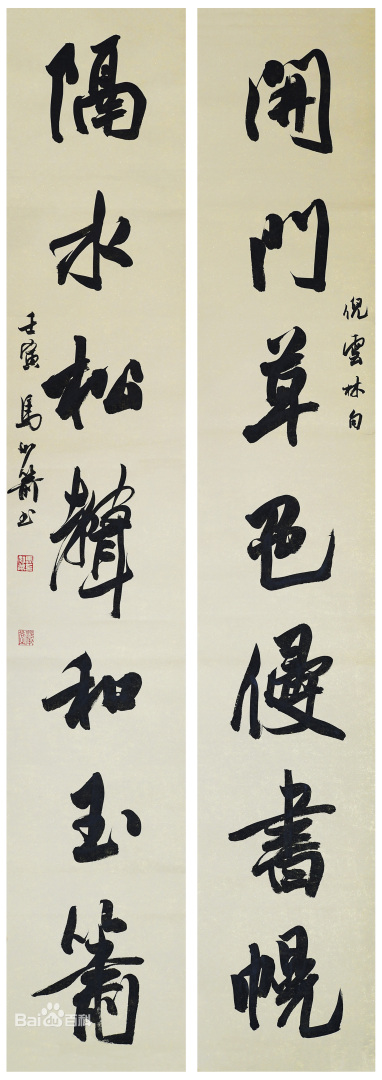 開門草色侵書幌
倪雲林句
隔水松聲和玉簫
壬寅 馬 箭书
Bai百科